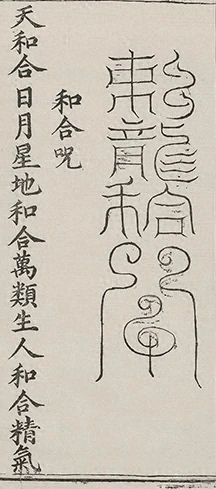 和合咒
天和合日月星地和合萬類生人和合精氣